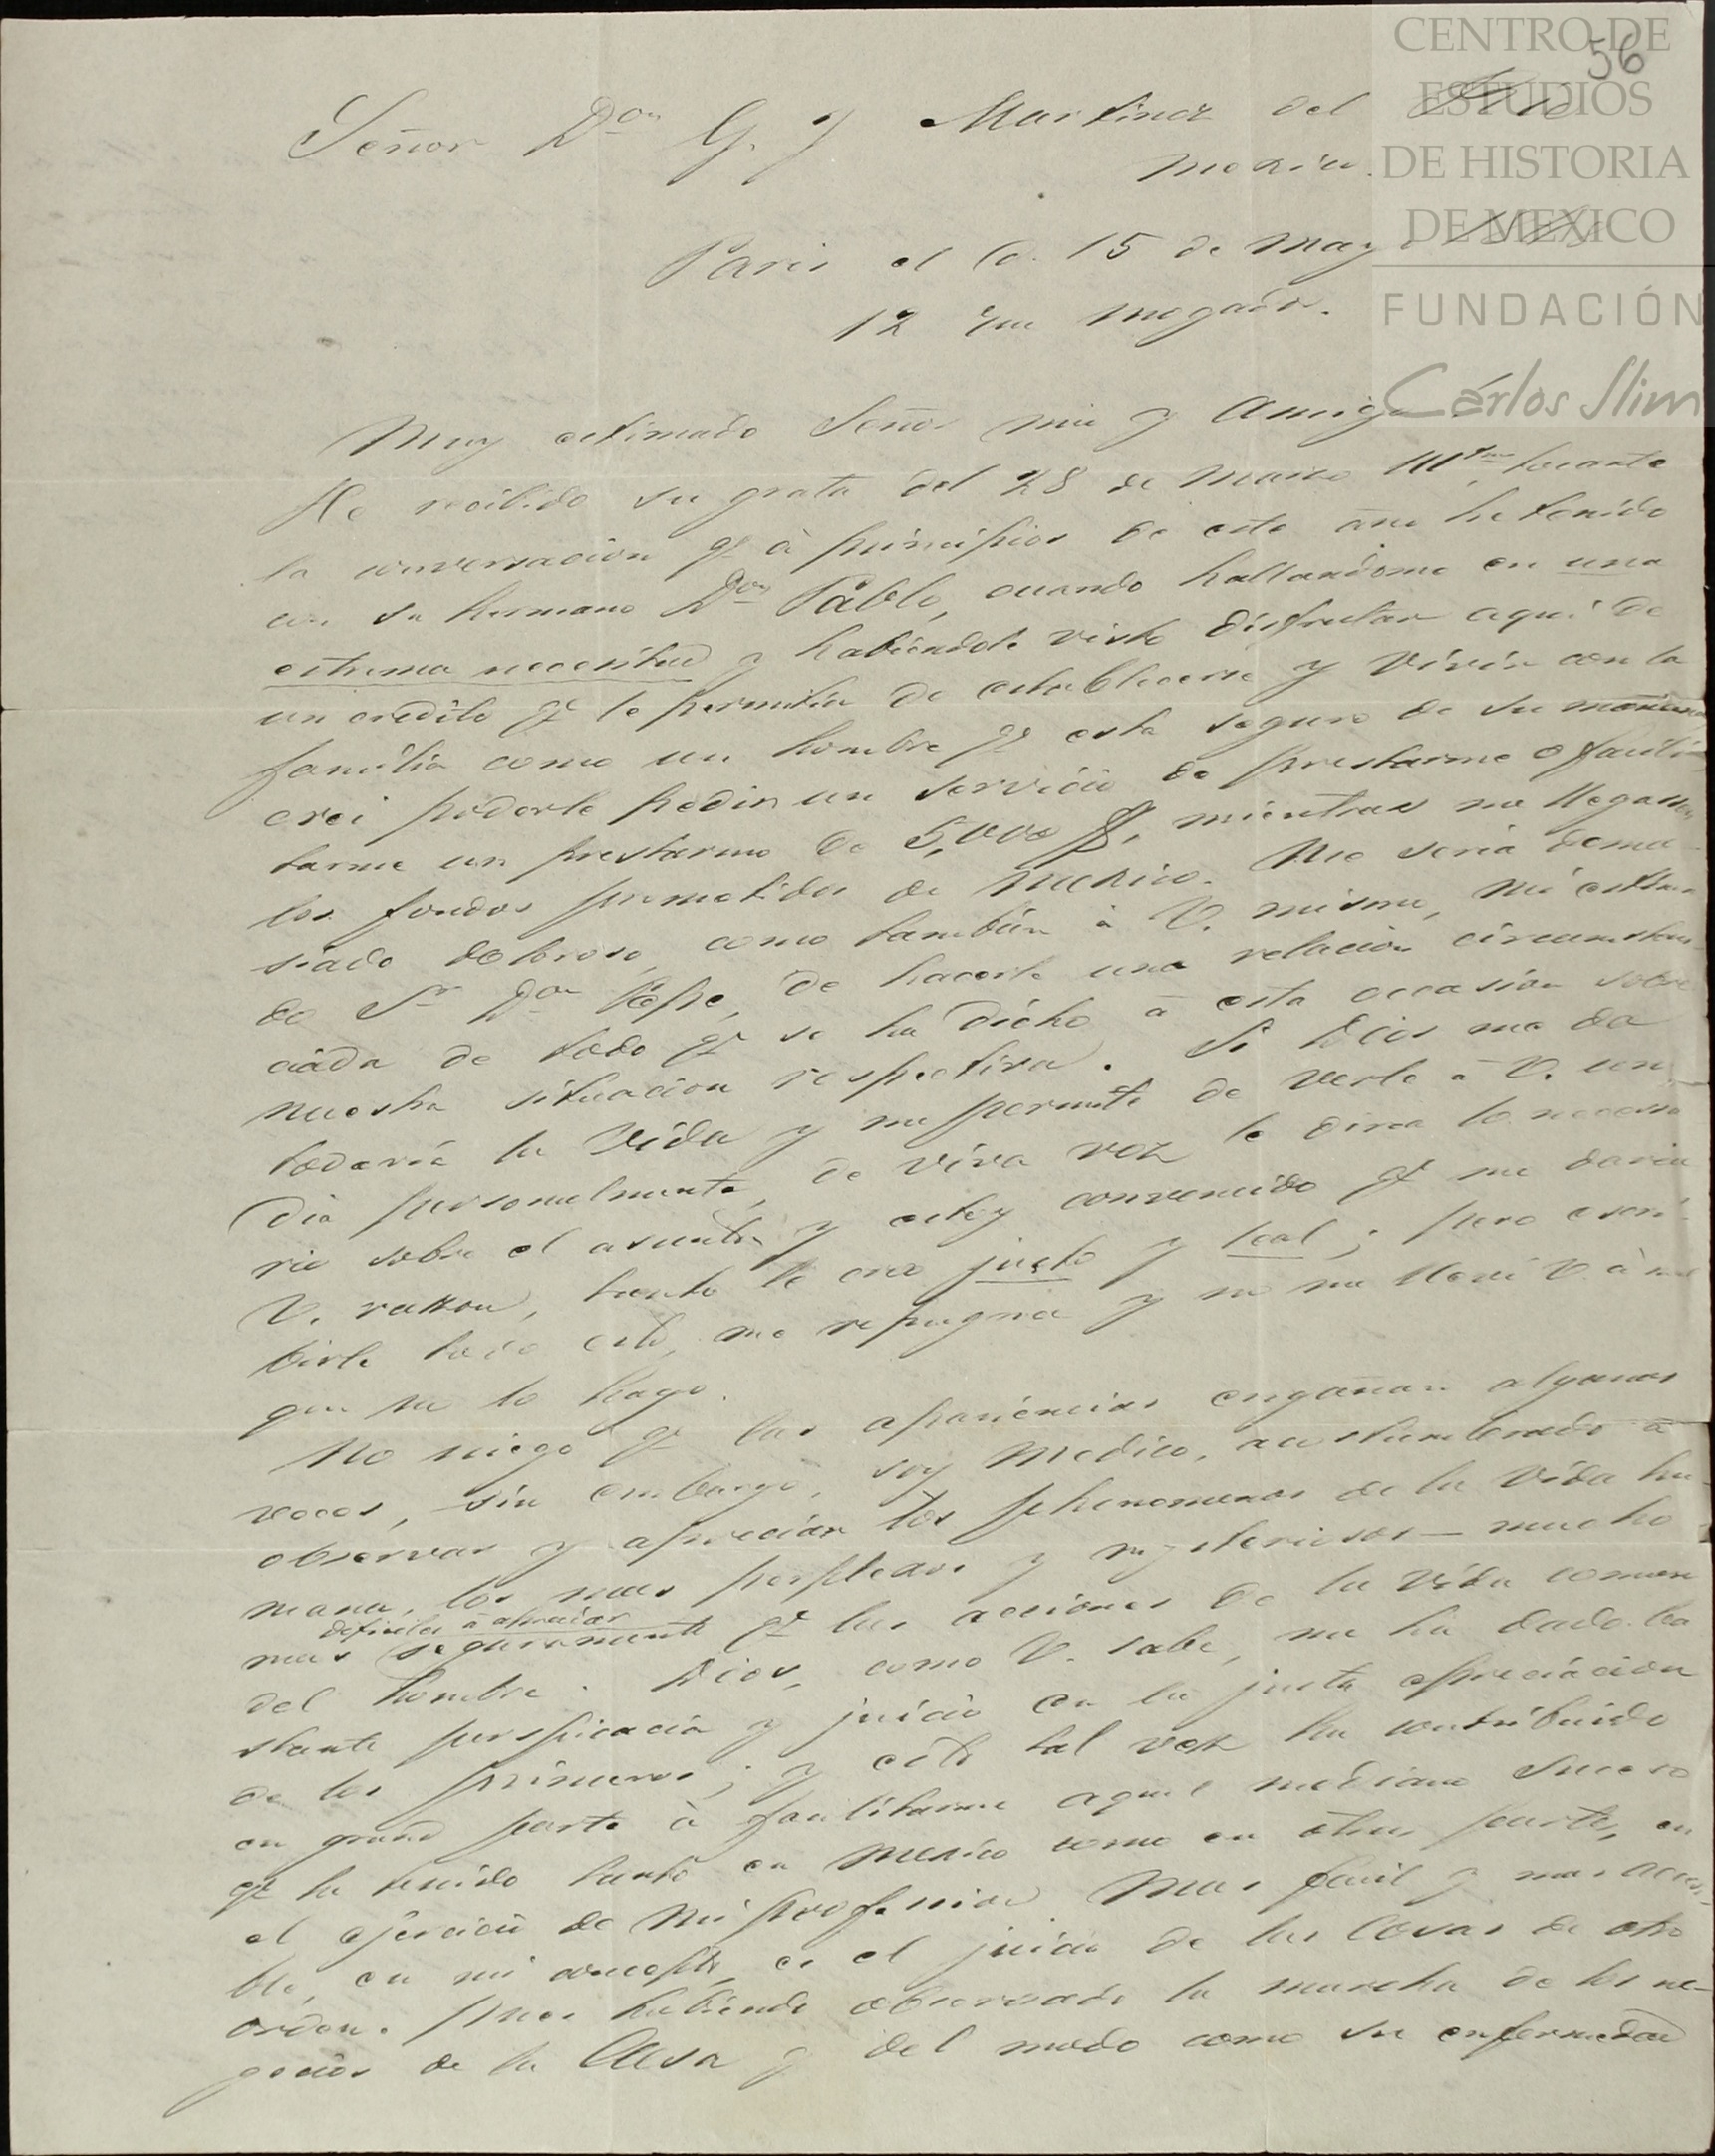 CENTRO DE
ESTUDIOS
DE HISTORIA
DE MEXICO
FUNDACIÓN
Carlos Slim
56
Señor Don G. y Martinez del
Mexico.
Paris el 15 de May
12 rue Mogador.
Muy estimado Señor mio y Amigo
He recibido su grata del 28 de Marzo tocante
la conversacion qe à principios de este año he tenido
con su hermano Don Pablo, cuando hallandome en una
estrema necesitad y habiendole visto disfrutar aqui de
un credito qe le permitia de establecerse y vivir con la
familia como un hombre qe esta seguro de su mañana
crei poderle pedir un servicio de prestarme o facili-
tarme un prestamo de 5,000 f, mientras me llegasen
los fondos prometidos de Mexico. Me seria dema-
siado doloroso, como tambien à V. mismo, mi estima-
do Sr Don Pepe, de hacerle una relacion circumstan-
ciada de todo qe se ha dicho à esta occasion sobre
nuestra situacion respectiva. Si Dios me da
todavia la vida y me permite de verle à V. un
dia personalmente, de viva voz le diria lo necesa-
rio sobre el asunto y estoy convencido qe me daria
V. razon, tanto le creo justo y leal; pero escri-
birle todo esto, me repugna y no me lleve V. à mal
que no lo hago.
No niego qe las apariencias engañan algunas
veces, sin embargo, soy medico, acostumbrado à
observar y apreciar los phenomenos de la vida hu-
mana, los mas perplexos y mysteriosos — mucho
dificiles à apreciar
mas seguramente qe las acciones de la vida comun
del hombre. Dios, como V. sabe, me ha dado ba-
stante perspicacia y juicio en la justa apreciacion
de los primeros; y esto tal vez ha contribuido
en grand parte à facilitarme aquel mediano suceso
qe he tenido tanto en Mexico como en otra parte, en
el ejercicio de mi profession. Mas facil y mas accesi-
ble, en mi concepto, es el juicio de las cosas de otro
orden. Pues habiendo observado la marcha de los ne-
gocios de la Casa y del modo como su enfermedad